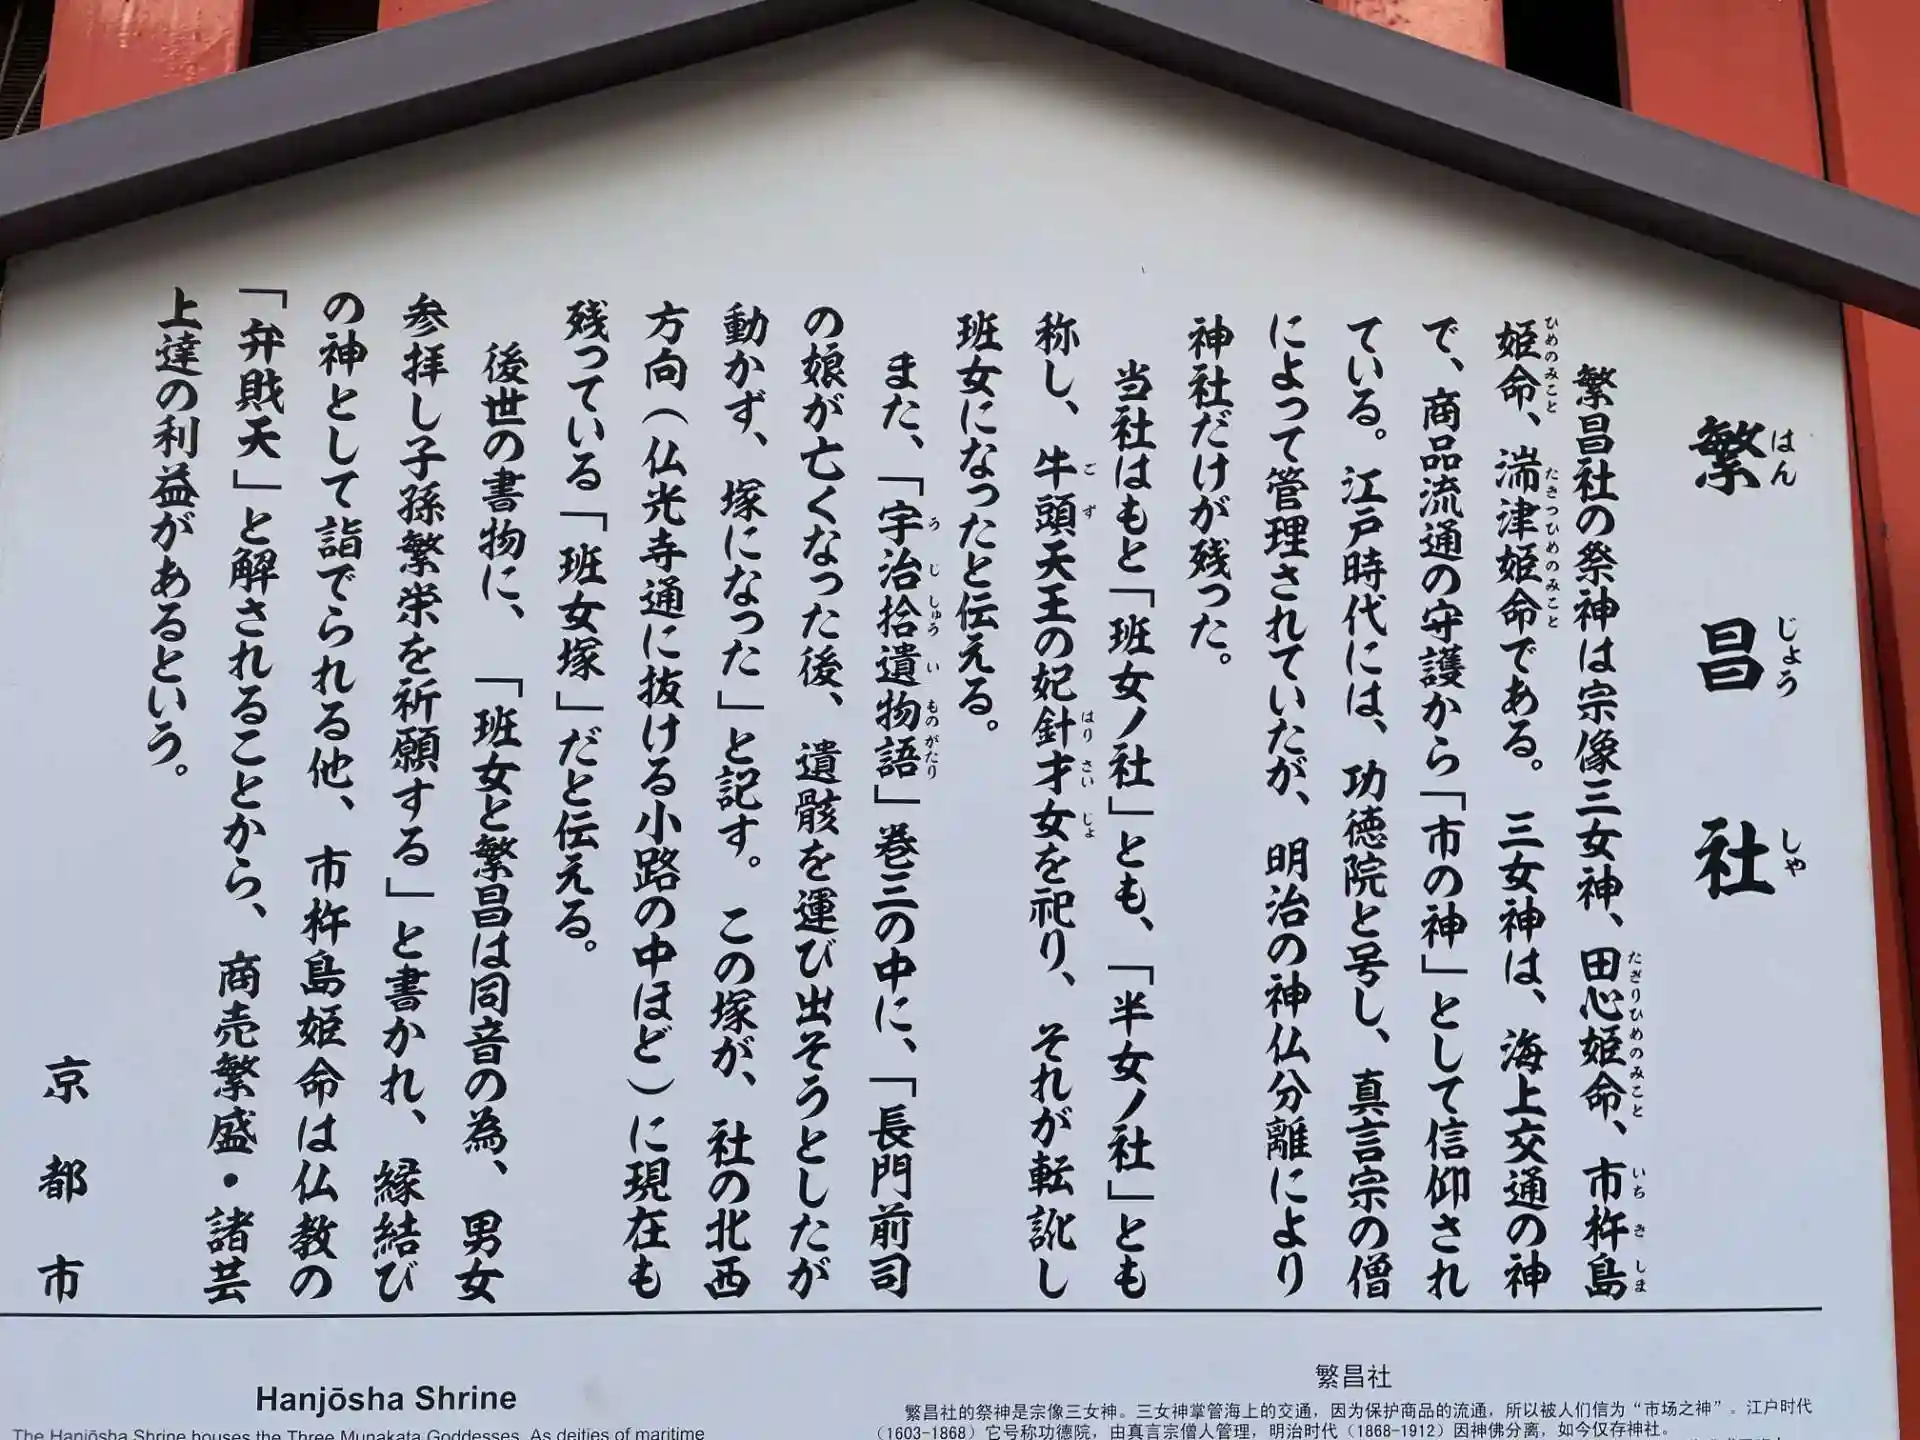 繁昌社
はんじょうしゃ
繁昌社の祭神は宗像三女神、田心姫命、市杵島
たぎりひめのみこと いちきしま
姫命、湍津姫命である。三女神は、海上交通の神
ひめのみこと たきつひめのみこと
で、商品流通の守護から「市の神」として信仰され
ている。江戸時代には、功徳院と号し、真言宗の僧
によって管理されていたが、明治の神仏分離により
神社だけが残った。
当社はもと「班女ノ社」とも、「半女ノ社」とも
称し、牛頭天王の妃針才女を祀り、それが転訛し
ごず はりさいじょ
班女になったと伝える。
また、「宇治拾遺物語」巻三の中に、「長門前司
うじしゅういものがたり
の娘が亡くなった後、遺骸を運び出そうとしたが
動かず、塚になった」と記す。この塚が、社の北西
方向(仏光寺通に抜ける小路の中ほど)に現在も
残っている「班女塚」だと伝える。
後世の書物に、「班女と繁昌は同音の為、男女
参拝し子孫繁栄を祈願する」と書かれ、縁結び
の神として詣でられる他、市杵島姫命は仏教の
「弁財天」と解されることから、商売繁盛・諸芸
上達の利益があるという。
京都市
Hanjōsha Shrine
The Hanjōsha Shrine houses the Three Munakata Goddesses. As deities of maritime
繁昌社
繁昌社的祭神是宗像三女神。三女神掌管海上的交通，因为保护商品的流通，所以被人们信为“市场之神”。江户时代
（1603-1868）它号称功德院，由真言宗僧人管理，明治时代（1868-1912）因神佛分离，如今仅存神社。